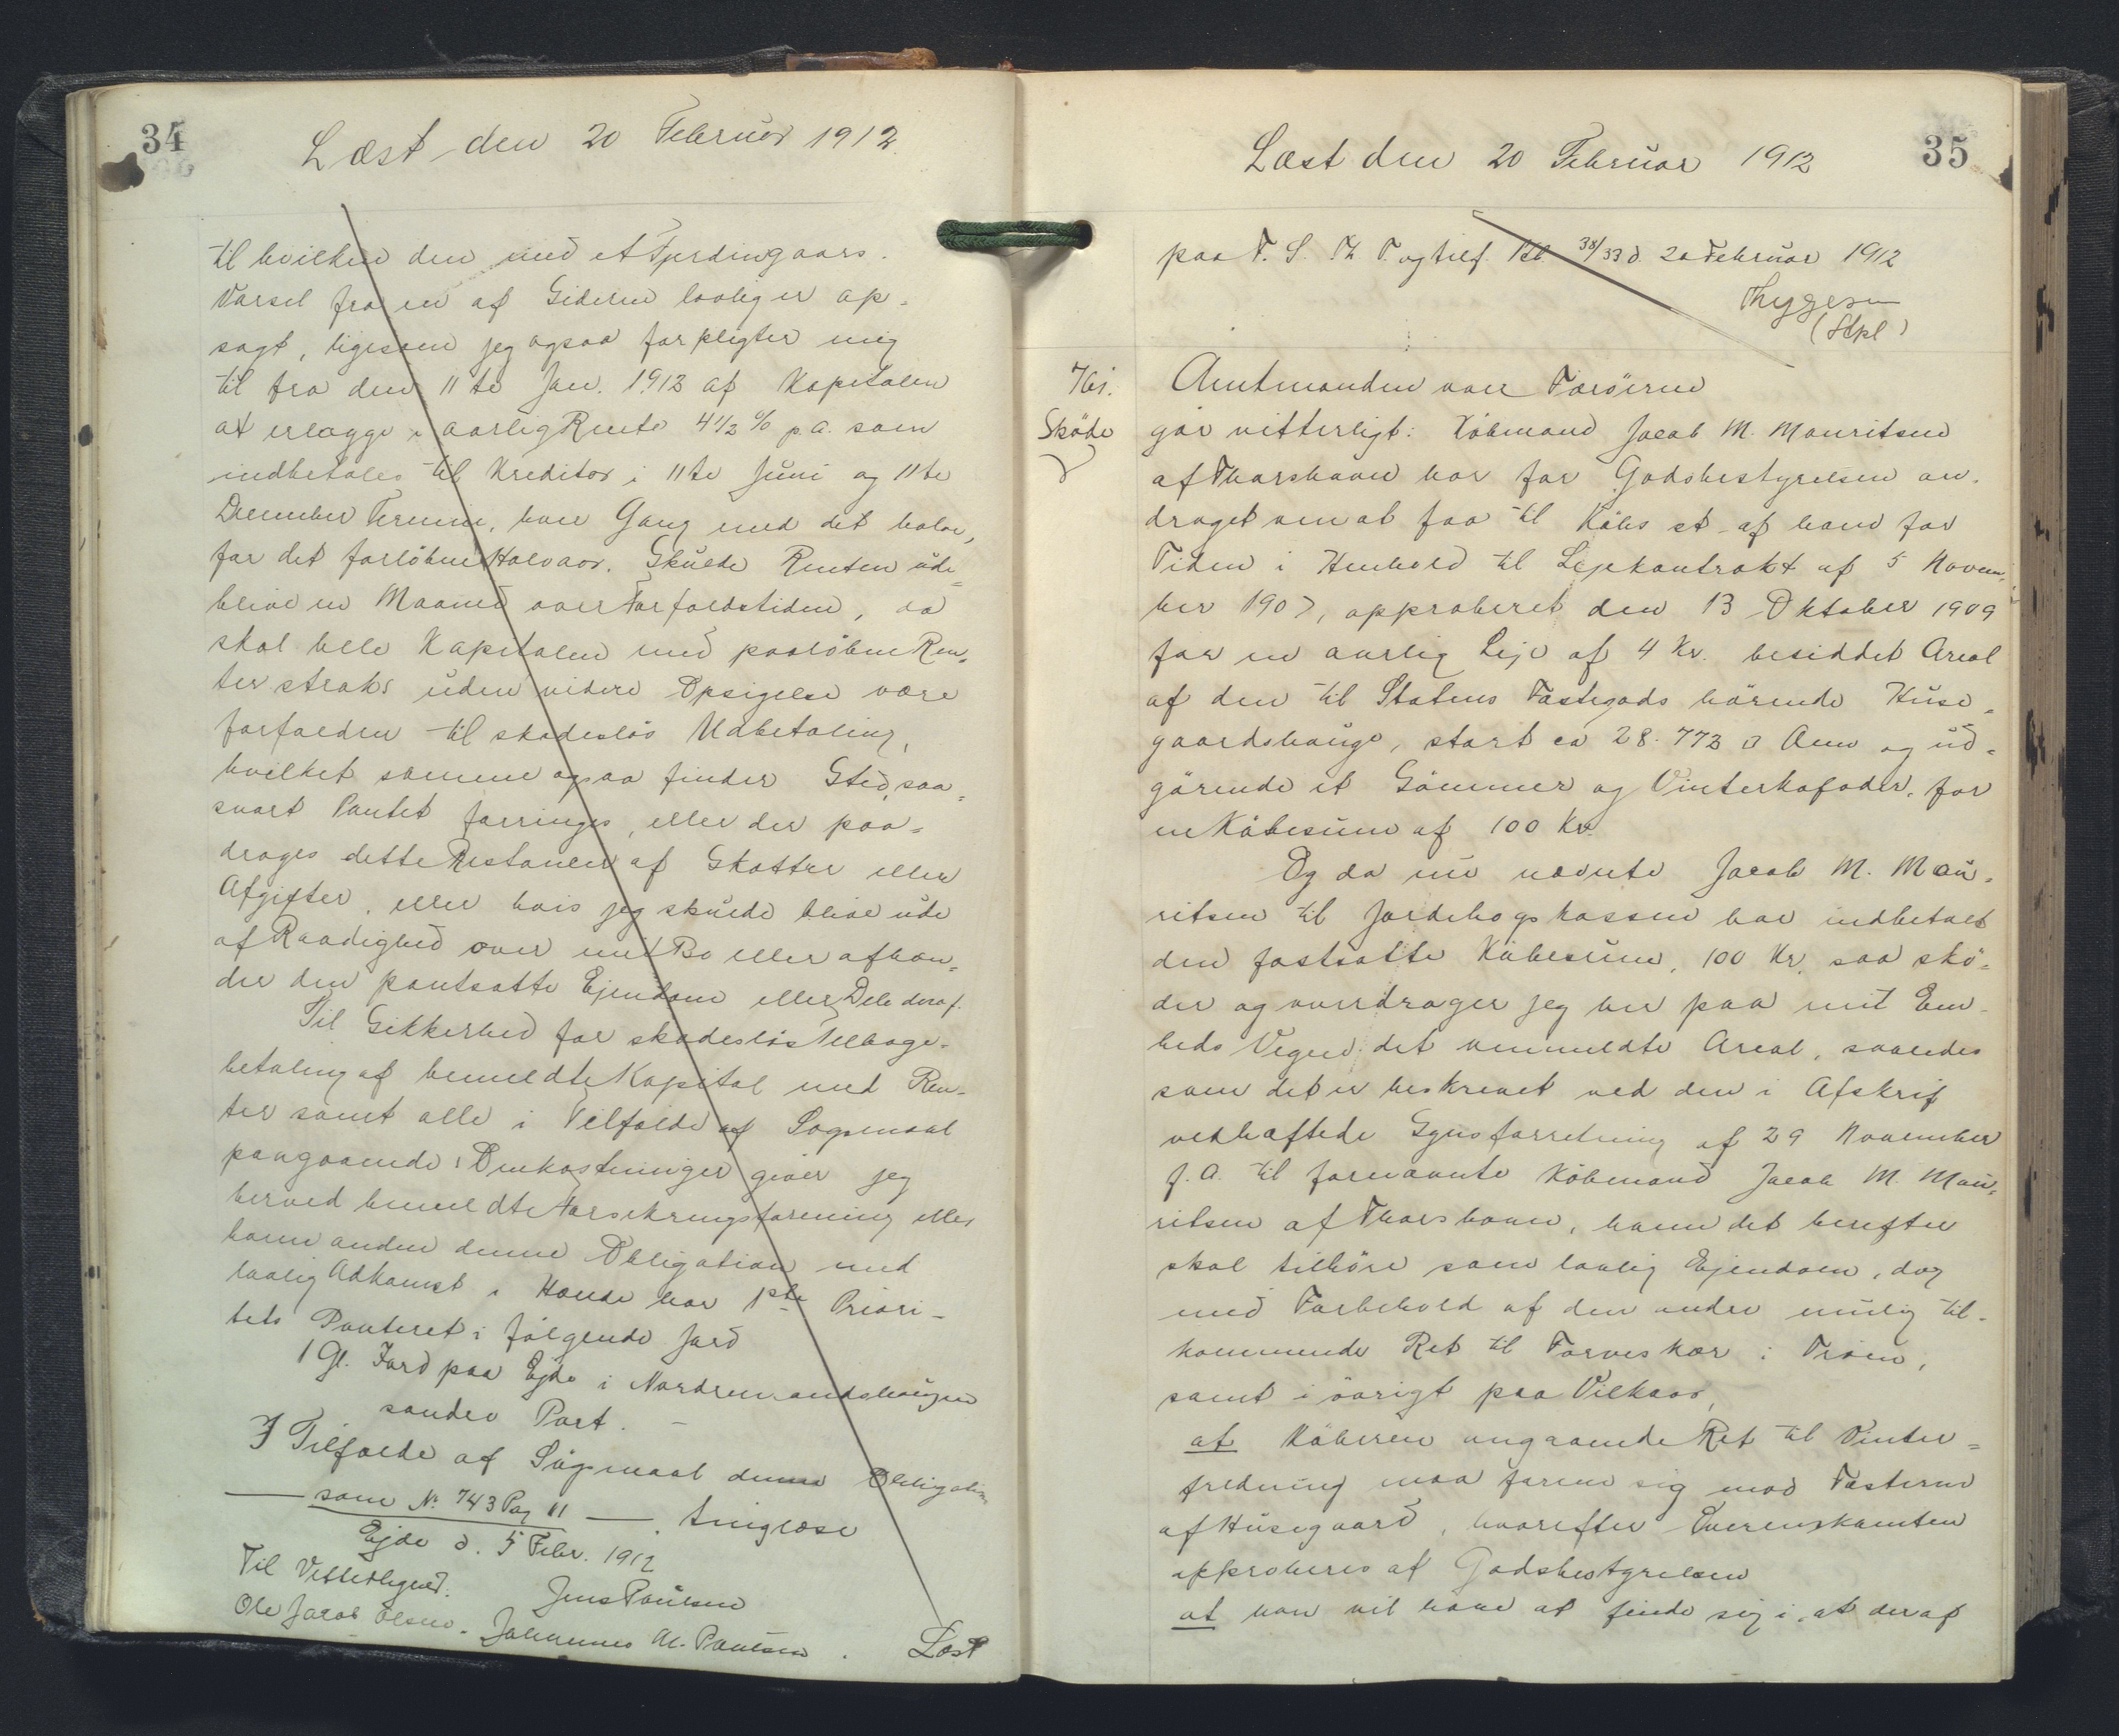 34
Læst den 20 Februar 1912.
til hvilken den med et Fjerdingaars.
Varsel fra en af Siderne lovlig er op-
sagt, ligesom jeg ogsaa forpligter mig
til fra den 11te Jan. 1912 af Kapitalen
at erlægge i aarlig Rente 4 1/2 % p.a. som
indbetales til Kreditor i 11te Juni og 11te
December Termin, hver Gang med det halve,
for det forløbne Halvaar. Skulde Renten ude-
blive en Maaned over Forfaldstiden, da
skal hele Kapitalen med paaløbne Ren-
ter straks uden videre Opsigelse være
forfalden til skadesløs Udbetaling,
hvilket samme ogsaa finder Sted, saa-
snart Pantet forringes, eller der paa-
drages dette Restancer af Skatter eller
Afgifter, eller hvis jeg skulde blive ude
af Raadighed over mit Bo eller afhæn-
der den pantsatte Ejendom eller Dele deraf.
Til Sikkerhed for skadesløs Tilbage-
betaling af bemeldte Kapital med Ren-
ter samt alle i Tilfælde af Søgsmaal
paagaaende Omkostninger giver jeg
herved bemeldte Forsikringsforening eller
hvem anden denne Obligation med
lovlig Adkomst i Hænde har 1ste Priori-
tets Panteret i følgende Jord
1 Gl. Jord paa Ejde i Nordremandshaugen
søndre Part. -
I Tilfælde af Søgsmaal denne Obligation
som No 743 Pag 11 tinglæse
Ejde d. 5 Febr. 1912
Til Vitterlighed. Jens Poulsen
Ole Jacob Olsen. Johannes M. Poulsen.
Læst
35
Læst den 20 Februar 1912
paa F. S. Th T. og tilf. Prt. 38/33 d. 20 Februar 1912
Thygesen
(Stpl)
761.
Skøde
Amtmanden over Færøerne
gør vitterligt: Købmand Jacob M. Mouritsen
af Thorshavn har for Godsbestyrelsen an-
draget om at faa til Købs et af ham for
Tiden i Henhold til Lejekontrakt af 5 Novem-
ber 1907, approberet den 13 Oktober 1909
for en aarlig Leje af 4 Kr. besiddet Areal
af den til Statens Fæstegods hørende Huse-
gaardshauge, stort ca 28.772 □ Alen og ud-
gørende et Sommer og Vinterkofoder, for
en Købesum af 100 Kr.
Og da nu nævnte Jacob M. Mou-
ritsen til Jordebogskassen har indbetalt
den fastsatte Købesum, 100 Kr, saa skø-
der og overdrager jeg her paa mit Em-
beds Vegne det ommeldte Areal, saaledes
som det er beskrevet ved den i Afskrift
vedhæftede Synsforretning af 29 November
f.A. til fornævnte Købmand Jacob M. Mou-
ritsen af Thorshavn, hvem det herefter
skal tilhøre som lovlig Ejendom, dog
med Forbehold af den andre mulig til-
kommende Ret til Tørveskær i Trøen,
samt i øvrigt paa Vilkaar,
at Køberen angaaende Ret til Vinter-
fredning maa forene sig med Fæsterne
af Husegaard, hvorefter Overenskomsten
approberes af Godsbestyrelsen
at han vil have at finde sig i, at deraf